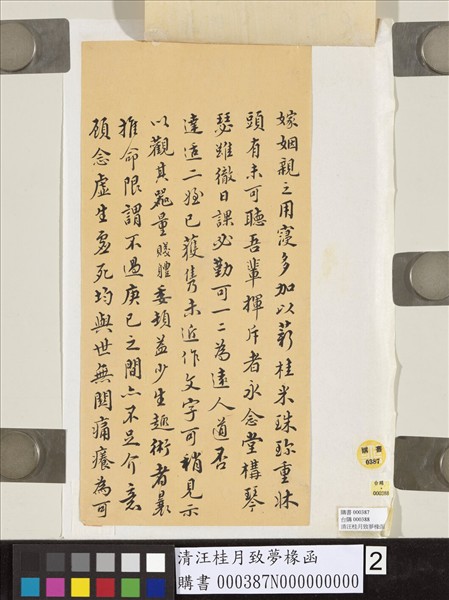 嫁姻親之用寖多加以薪桂米珠珎重牀
頭有未可聽吾輩揮斥者永念堂構琴
瑟雖徹日課必勤可一二為遠人道否
達適二姪已獲售未近作文字可稍見示
以觀其器量賤體委頓益少生趣術者最
推命限謂不過庚巳之間亦不足介意
顧念虛生處死均與世無関痛癢為可
購書
0387
台購
000388
購書 000387
台購 000388
清汪桂月致夢橡函
清汪桂月致夢橡函
購書 000387N000000000
2